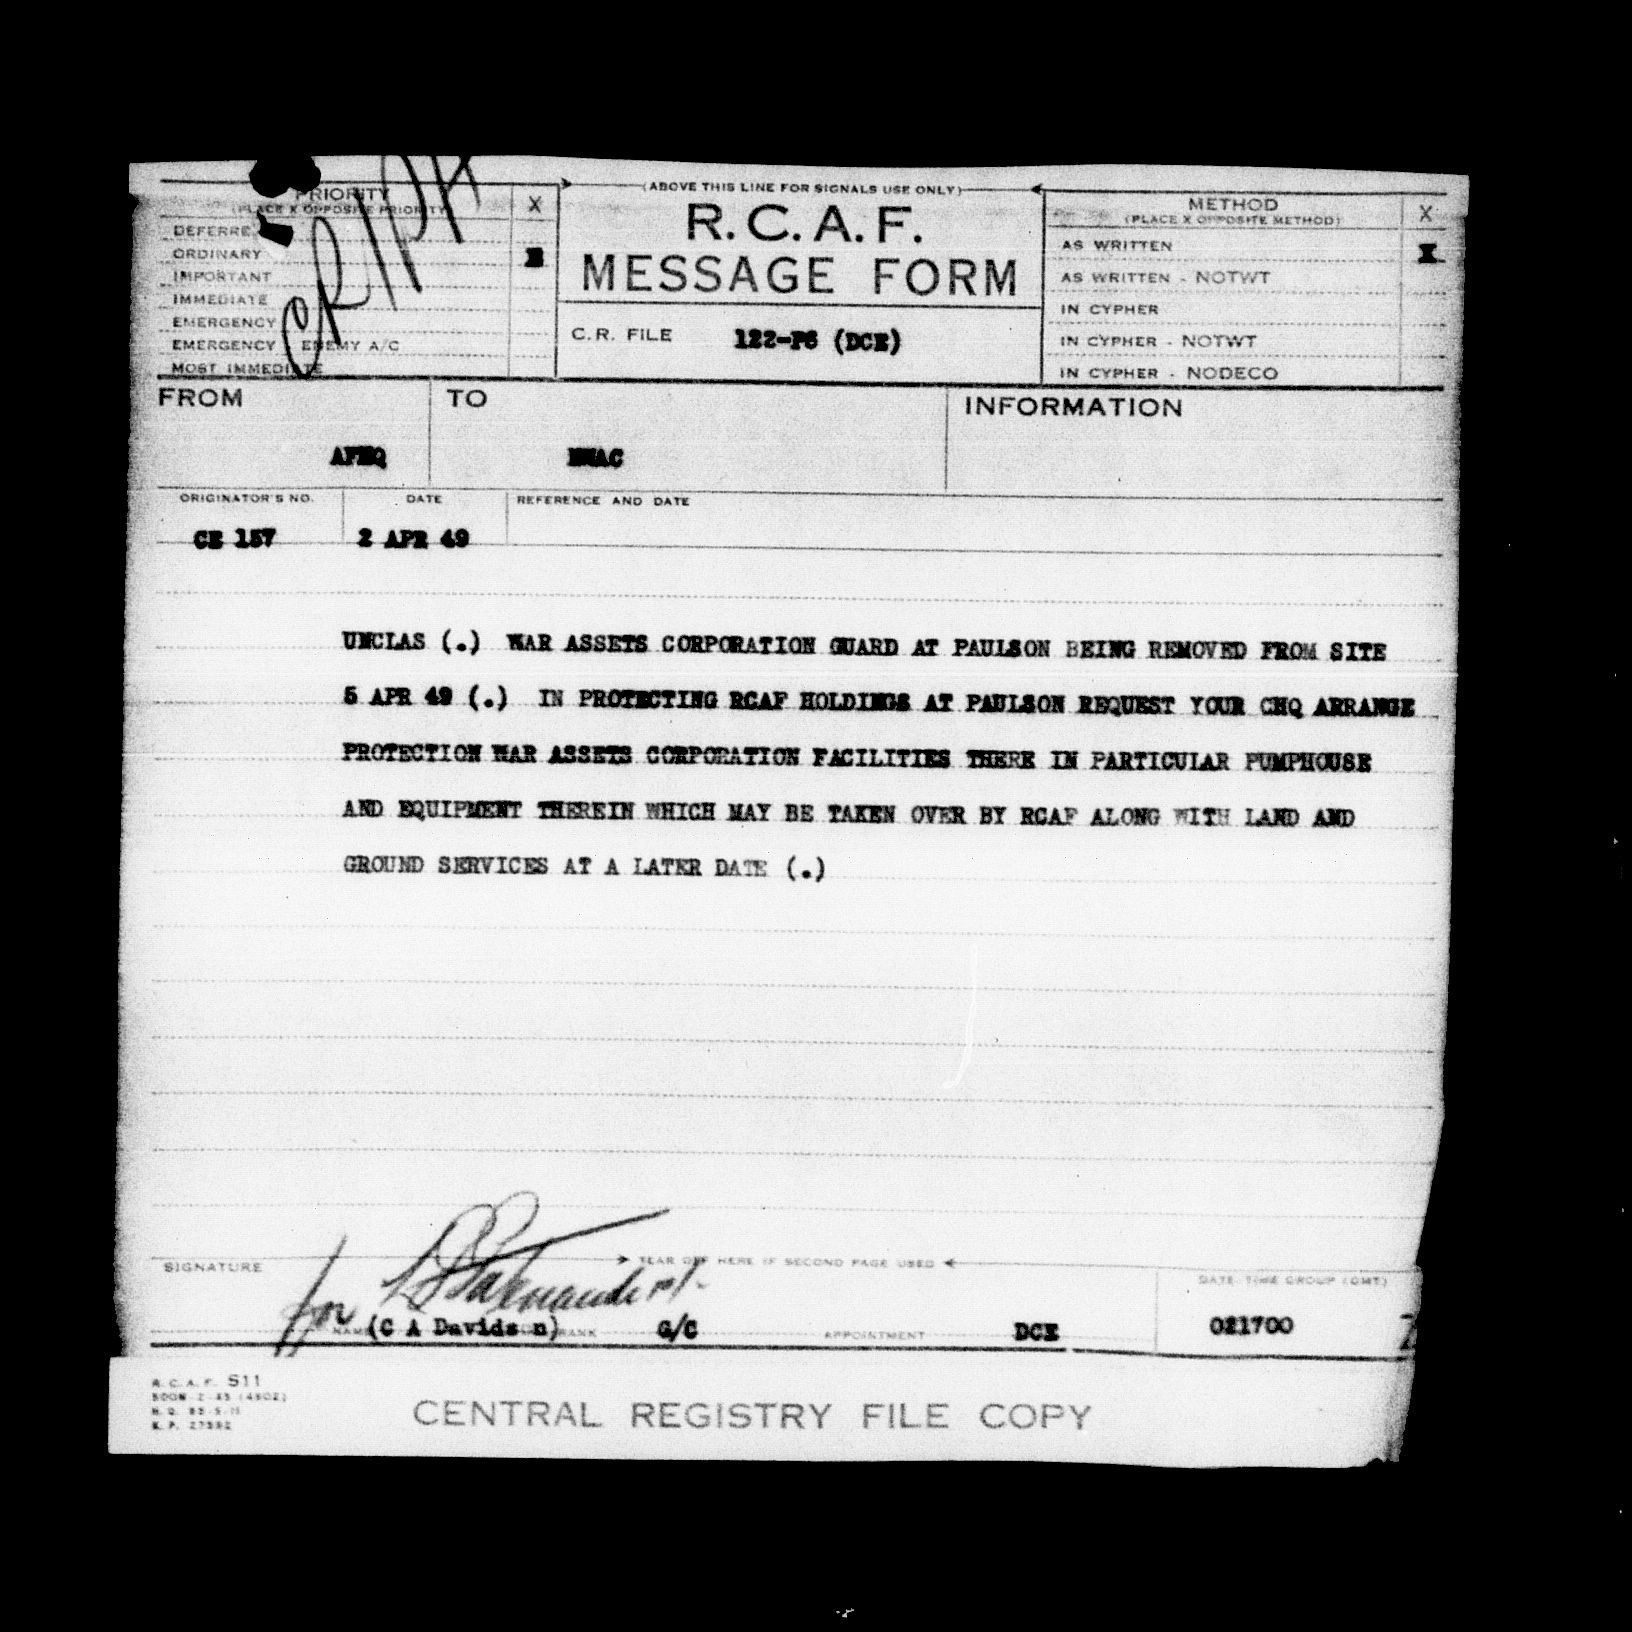 (ABOVE THIS LINE FOR SIGNALS USE ONLY)
PRIORITY
(PLACE X OPPOSITE PRIORITY)
X
DEFERRE
ORDINARY
IMPORTANT
IMMEDIATE
EMERGENCY
EMERGENCY - ENEMY A/C
MOST IMMEDIATE
R.C.A.F.
MESSAGE FORM
C.R. FILE 122-P6 (DCE)
METHOD
(PLACE X OPPOSITE METHOD)
X
AS WRITTEN X
AS WRITTEN - NOTWT
IN CYPHER
IN CYPHER - NOTWT
IN CYPHER - NODECO
FROM TO INFORMATION
AFHQ NWAC
ORIGINATOR'S NO. DATE REFERENCE AND DATE
CE 157 2 APR 49
UNCLAS (.) WAR ASSETS CORPORATION GUARD AT PAULSON BEING REMOVED FROM SITE
5 APR 49 (.) IN PROTECTING RCAF HOLDINGS AT PAULSON REQUEST YOUR CHQ ARRANGE
PROTECTION WAR ASSETS CORPORATION FACILITIES THERE IN PARTICULAR PUMPHOUSE
AND EQUIPMENT THEREIN WHICH MAY BE TAKEN OVER BY RCAF ALONG WITH LAND AND
GROUND SERVICES AT A LATER DATE (.)
SIGNATURE
TEAR OFF HERE IF SECOND PAGE USED
DATE-TIME GROUP (GMT)
for
NAME (C A Davidson) RANK G/C APPOINTMENT DCE 021700
R.C.A.F. S11
CENTRAL REGISTRY FILE COPY